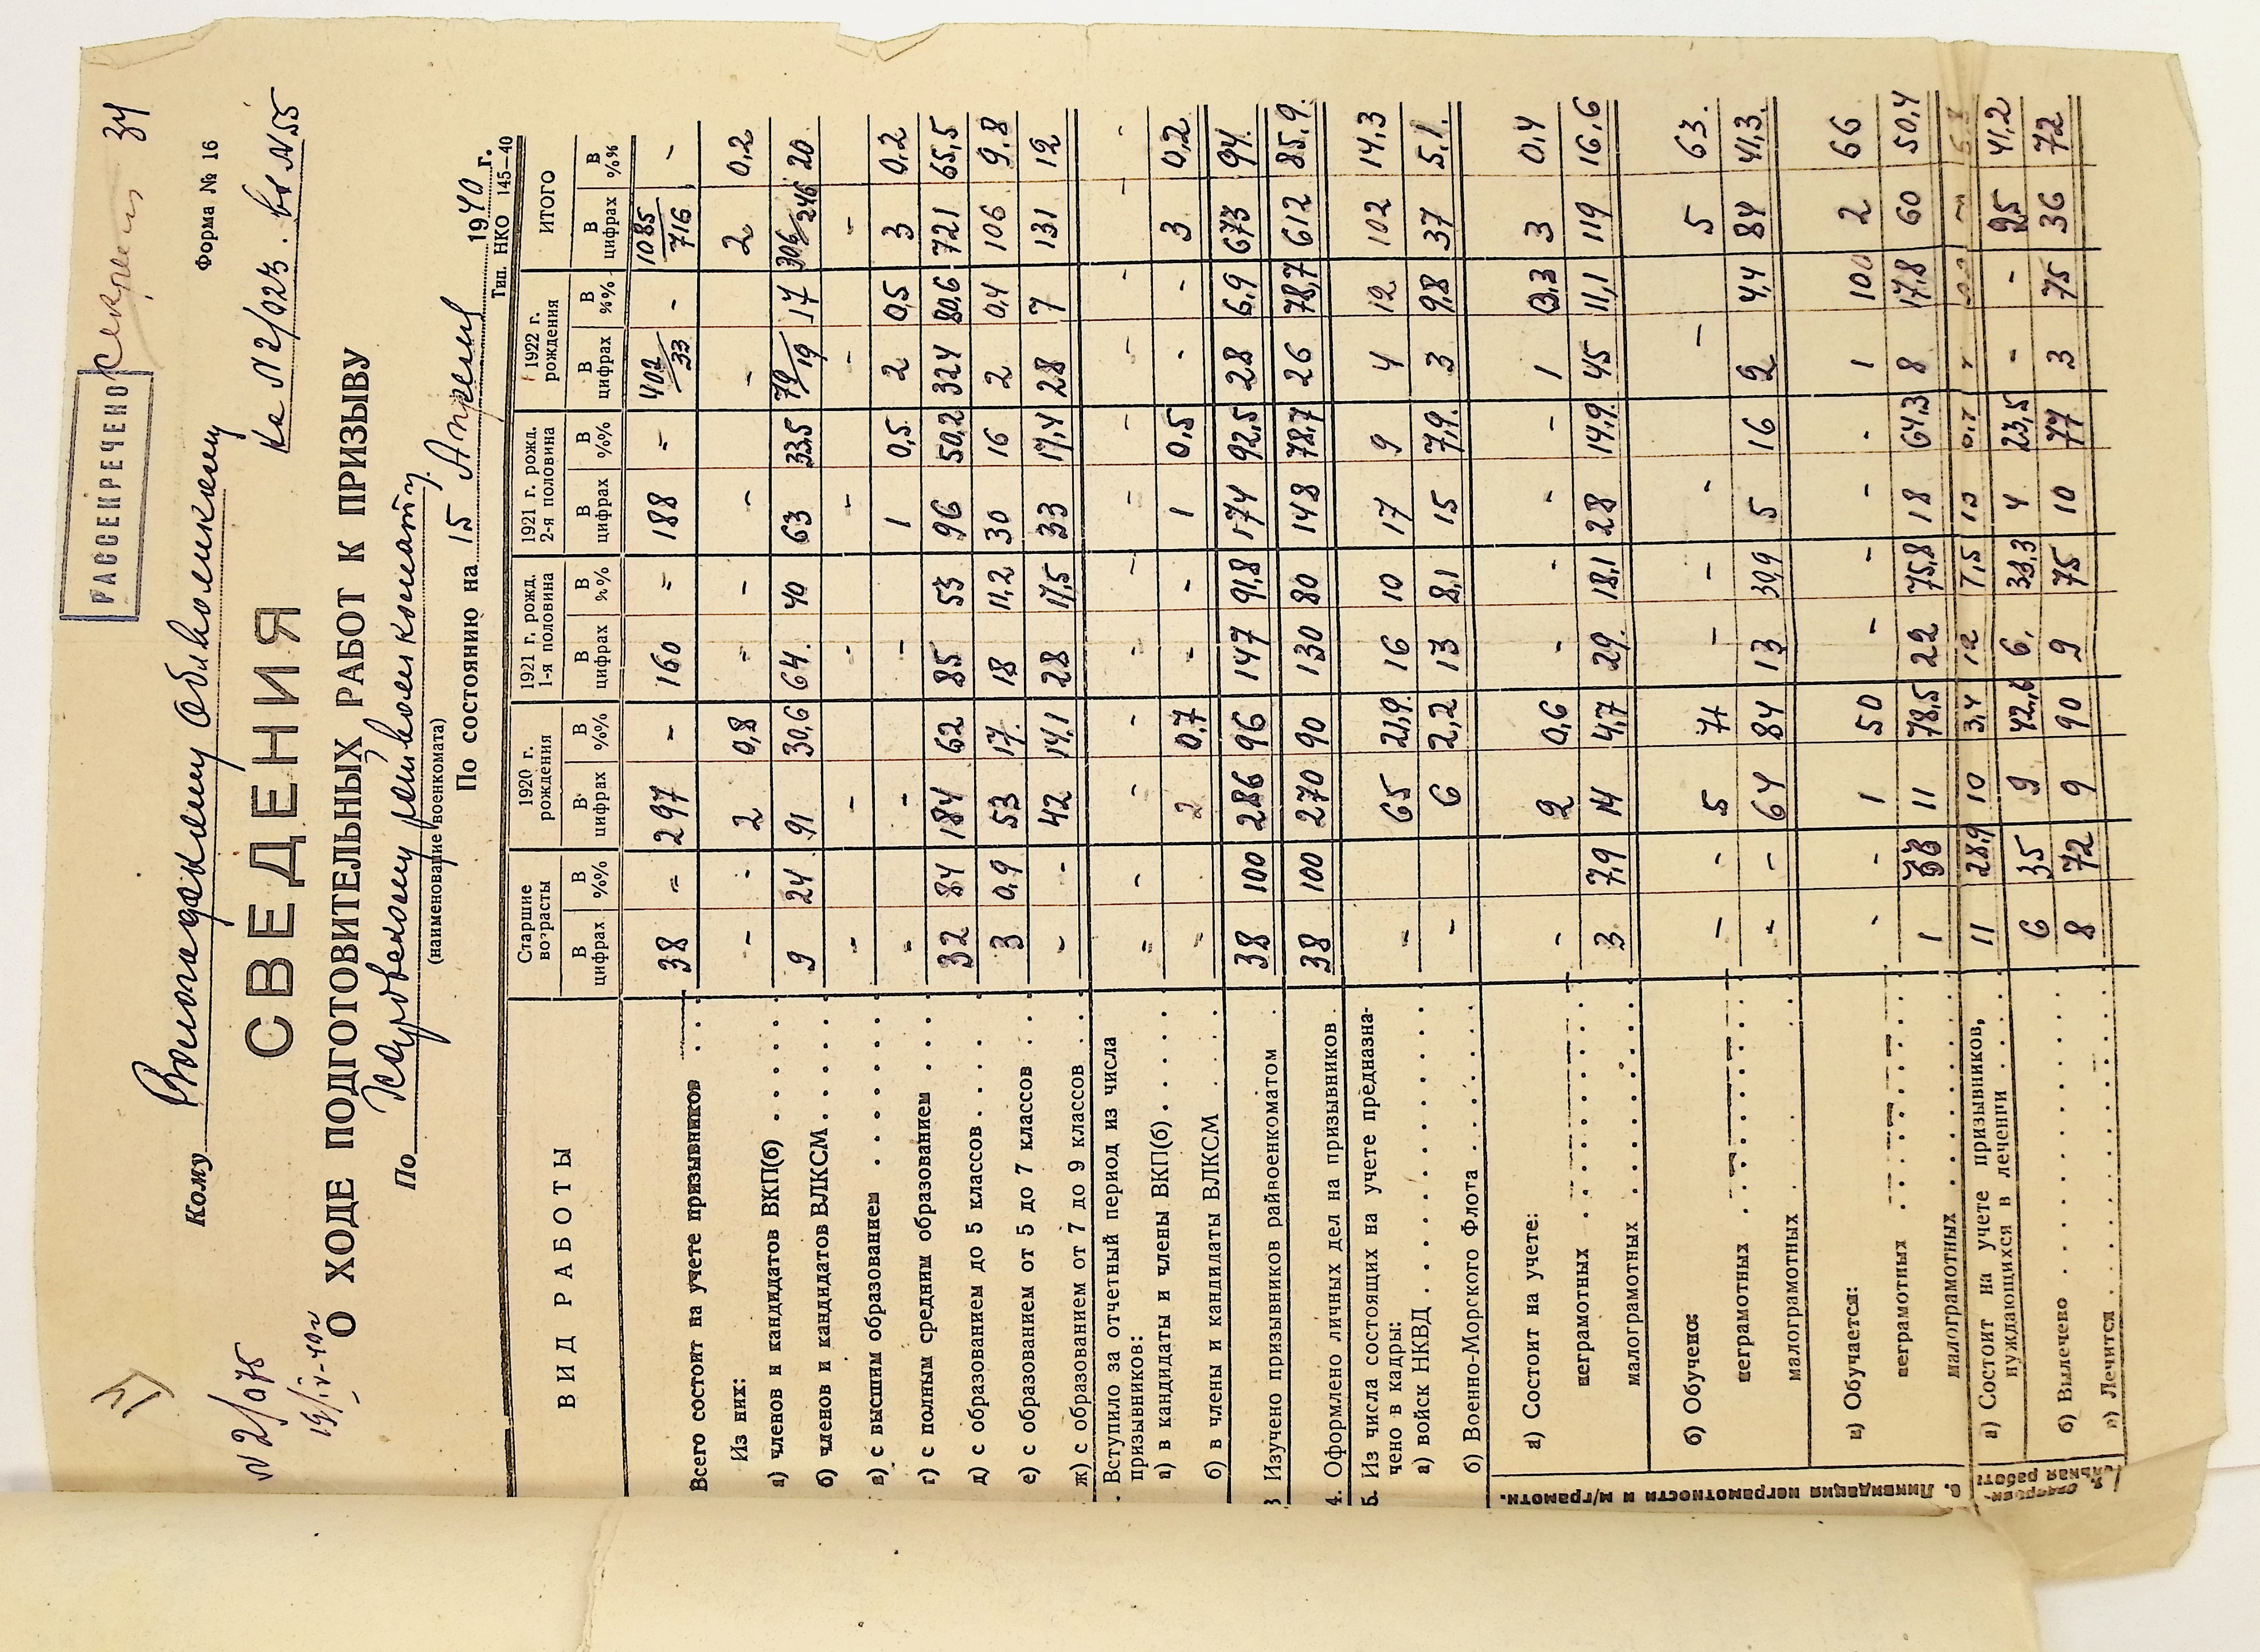 РАССЕКРЕЧЕНО Секретно 34
Форма № 16
Кому Вологодскому Облвоенкому
На № 2/023. вх № 55
№ 2/075
19/IV-40г
СВЕДЕНИЯ
О ХОДЕ ПОДГОТОВИТЕЛЬНЫХ РАБОТ К ПРИЗЫВУ
По райвоенкомату
(наименование военкомата)
По состоянию на 15 Апреля 1940 г.
Тип. НКО 145—40
ВИД РАБОТЫ | Старшие возрасты | 1920 г. рождения | 1921 г. рожд. 1-я половина | 1921 г. рожд. 2-я половина | 1922 г. рождения | ИТОГО
В цифрах | В %% | В цифрах | В %% | В цифрах | В %% | В цифрах | В %% | В цифрах | В %% | В цифрах | В %%
Всего состоит на учете призывников . . 38 = 297 - 160 = 188 = 402/33 - 1085/716 -
Из них:
а) членов и кандидатов ВКП(б) . . . . . . - - 2 0,8 - - - - - 2 0,2
б) членов и кандидатов ВЛКСМ . . . . . . 9 24 91 30,6 64. 40 63 33,5 79/19 17 306/246 20
в) с высшим образованием . . . . . . . - - - -
г) с полным средним образованием . . . - - - 1 0,5. 2 0,5 3 0,2
д) с образованием до 5 классов . . . . 32 84 184 62 85 53 96 50,2 324 80,6 721 65,5
е) с образованием от 5 до 7 классов . . 3 0,9 53 17. 18 11,2 30 16 2 0,4 106 9.8
ж) с образованием от 7 до 9 классов . . - - 42 14,1 28 17,5 33 17,4 28 7 131 12
Вступило за отчетный период из числа
призывников:
а) в кандидаты и члены ВКП(б) . . . . . = - - - - - - - - -
б) в члены и кандидаты ВЛКСМ . . . . = 2 0,7 - - 1 0,5 - - 3 0,2
3 Изучено призывников райвоенкоматом 38 100 286 96 147 91,8 174 92,5 28 6,9 673 94.
4. Оформлено личных дел на призывников . 38 100 270 90 130 80 148 78,7 26 78,7 612 85,9.
5. Из числа состоящих на учете предназна-
чено в кадры:
а) войск НКВД . . . . . . . . . . . - 65 21,9. 16 10 17 9 4 12 102 14,3
б) Военно-Морского Флота . . . . . . . - 6 2,2 13 8,1 15 7,9. 3 9,8 37 5,1.
6. Ликвидация неграмотности и м/грамотн.
а) Состоит на учете:
неграмотных . . . . . . . - 2 0,6 - - - - 1 3,3 3 0,4
малограмотных . . . . . . . 3 7,9 14 4,7 29. 18,1 28 14,9. 45 11,1 119 16,6
б) Обучено:
неграмотных . . . . . . . - - 5 71 - - - - 5 63.
малограмотных . . - - 64 84 13 30,9 5 16 2 4,4 84 41,3.
в) Обучается:
неграмотных . . . . . . . - - 1 50 - - - - 1 100 2 66
малограмотных . . . . . . . 1 33 11 78,5 22 75,8 18 64,3 8 17,8 60 50,4
а) Состоит на учете призывников,
нуждающихся в лечении . . . . 11 28,9 10 3,4 12 7,5
б) Вылечено . . . . . . . . . . 6 35 9 42,6 6. 33,3 4 23,5 - - 25 41,2
в) Лечится . . . . . . . . . . 8 72 9 90 9 75 10 77 3 75 36 72